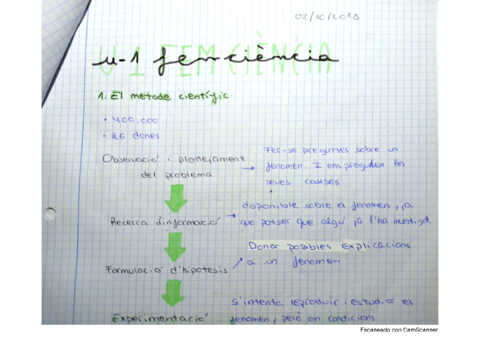 02/10/2018
U-1 FEM CIÈNCIA
u-1 fem ciència
1. El metode científic.
• 400.000
• 26 dones
Observació i plantejament
del problema
Fer-se preguntes sobre un
fenomen. I ens pregunten les
seves causes
Recerca d'informació
disponible sobre el fenomen, ja
que potser que algú ja l'ha investigat.
Donar possibles explicacions
a un fenomen
Formulació d'hipòtesis
Experimentació
S'intenta reproduir i estudiar el
fenomen, però en condicions
Escaneado con CamScanner